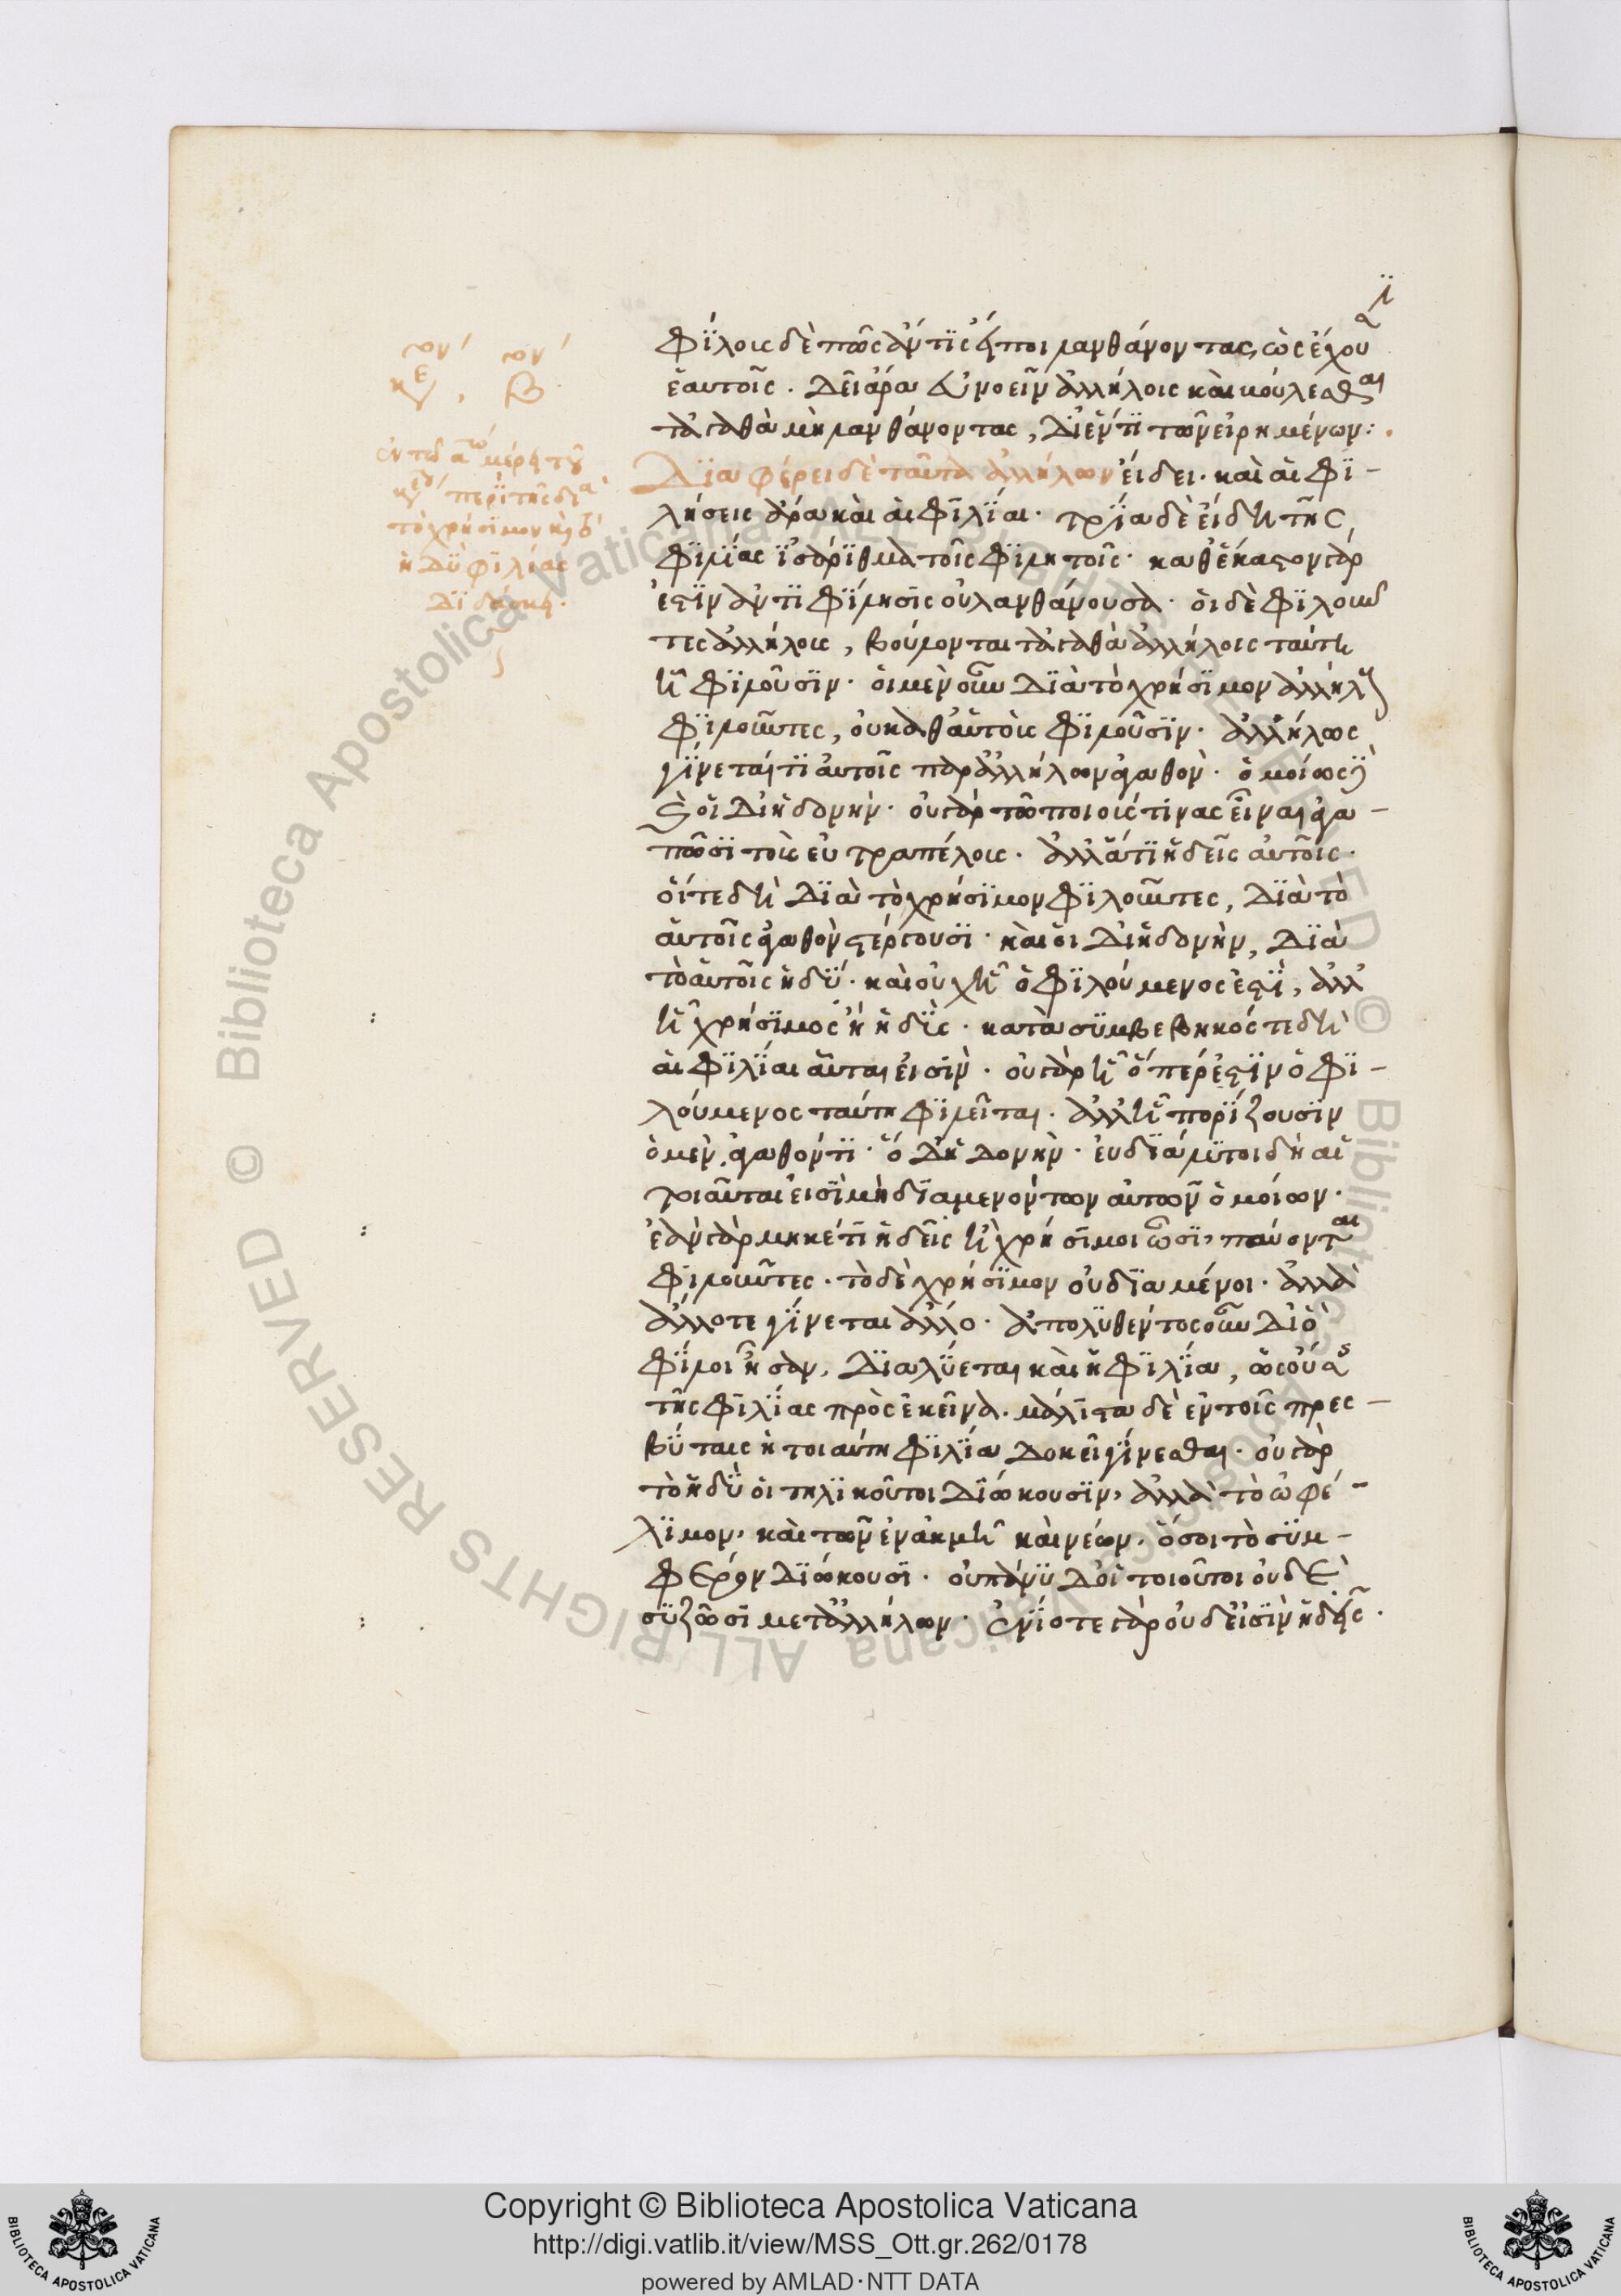 φίλους δὲ πῶς ἄν τις εἴποι λανθάνοντας, ὡς ἔχουσιν
ἑαυτοῖς. δεῖ ἄρα εὐνοεῖν ἀλλήλοις καὶ βούλεσθαι
τἀγαθὰ μὴ λανθάνοντας, δι' ἕν τι τῶν εἰρημένων:
Διαφέρει δὲ ταῦτα ἀλλήλων εἴδει· καὶ αἱ φι-
λήσεις ἄρα καὶ αἱ φιλίαι. τρία δὲ εἴδη τῆς
φιλίας ἰσάριθμα τοῖς φιλητοῖς· καθ' ἕκαστον γὰρ
ἐστὶν ἀντιφίλησις οὐ λανθάνουσα. οἱ δὲ φιλοῦν
τες ἀλλήλους, βούλονται τἀγαθὰ ἀλλήλοις ταύτῃ
ᾗ φιλοῦσιν. οἱ μὲν οὖν διὰ τὸ χρήσιμον ἀλλήλους
φιλοῦντες, οὐ καθ' αὑτοὺς φιλοῦσιν. ἀλλ' ἥλως
γίνεταί τι αὐτοῖς παρ' ἀλλήλων ἀγαθόν. ὁμοίως δὲ
καὶ οἱ δι' ἡδονήν. οὐ γὰρ τῶ ποιούς τινας εἶναι ἀγα-
πῶσι τοὺς εὐτραπέλους. ἀλλ' ὅτι ἡδεῖς αὐτοῖς.
οἵ τε δὴ διὰ τὸ χρήσιμον φιλοῦντες, διὰ τὸ
αὑτοῖς ἀγαθὸν στέργουσι. καὶ οἱ δι' ἡδονὴν, διὰ
τὸ αὑτοῖς ἡδύ. καὶ οὐχ ᾗ ὁ φιλούμενος ἐστὶ, ἀλλ'
ᾗ χρήσιμος ἢ ἡδύς. κατὰ συμβεβηκός τε δὴ
αἱ φιλίαι αὗται εἰσίν. οὐ γὰρ ᾗ ὅπερ ἐστὶν ὁ φι-
λούμενος ταύτη φιλεῖται. ἀλλ' ᾗ πορίζουσιν
ὁ μὲν ἀγαθόν τι· ὁ δ' ἡδονήν. εὐδιάλυτοι δὴ αἱ
τοιαῦται εἰσὶ μὴ διαμενόντων αὐτῶν ὁμοίων.
ἐὰν γὰρ μηκέτι ἡδεῖς ἢ χρήσιμοι ὦσι, παύονται
φιλοῦντες. τὸ δὲ χρήσιμον οὐ διαμένοι. ἀλλὰ
ἄλλοτε γίνεται ἄλλο. ἀπολυθέντος οὖν δι' ὃ
φίλοι ἦσαν, διαλύεται καὶ ἡ φιλία, ὡς οὔσης
τῆς φιλίας πρὸς ἐκεῖνα. μάλιστα δὲ ἐν τοῖς πρεσ-
βύταις ἡ τοιαύτη φιλία δοκεῖ γίνεσθαι. οὐ γὰρ
τὸ ἡδὺ οἱ τηλικοῦτοι διώκουσιν, ἀλλὰ τὸ ὠφέ-
λιμον, καὶ τῶν ἐν ἀκμῇ καὶ νέων, ὅσοι τὸ συμ-
φέρον διώκουσι. οὐ πάνυ δ' οἱ τοιοῦτοι οὐδὲ
συζῶσι μετ' ἀλλήλων. ἐνίοτε γὰρ οὐδ' εἰσὶν ἡδεῖς.
ἐν τῶ αω μέρει τοῦ
περὶ τῆς διὰ
τὸ χρήσιμον καὶ τὸ
ἡδὺ φιλίας
διδάσκει.
Copyright © Biblioteca Apostolica Vaticana
http://digi.vatlib.it/view/MSS_Ott.gr.262/0178
powered by AMLAD·NTT DATA